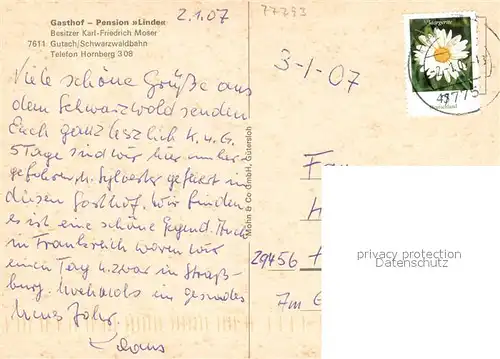 Gasthof – Pension »Linde«
Besitzer Karl-Friedrich Moser
7611 Gutach/Schwarzwaldbahn
Telefon Hornberg 308
2.1.07
77793
3-1-07
Margerite
45
Deutschland
Viele schöne Grüße aus
dem Schwarzwald senden
Euch ganz herzlich K. u. G.
5 Tage sind wir hier umher-
gefahren u. Sylvester gefeiert in
diesen Gasthof. Wir finden
es ist eine schöne Gegend. Auch
in Frankreich waren wir
einen Tag u. zwar in Straß-
burg. Nochmals ein gesundes
neues Jahr
Klaus
Mohn & Co GmbH, Gütersloh
29456
Am
privacy protection
Datenschutz